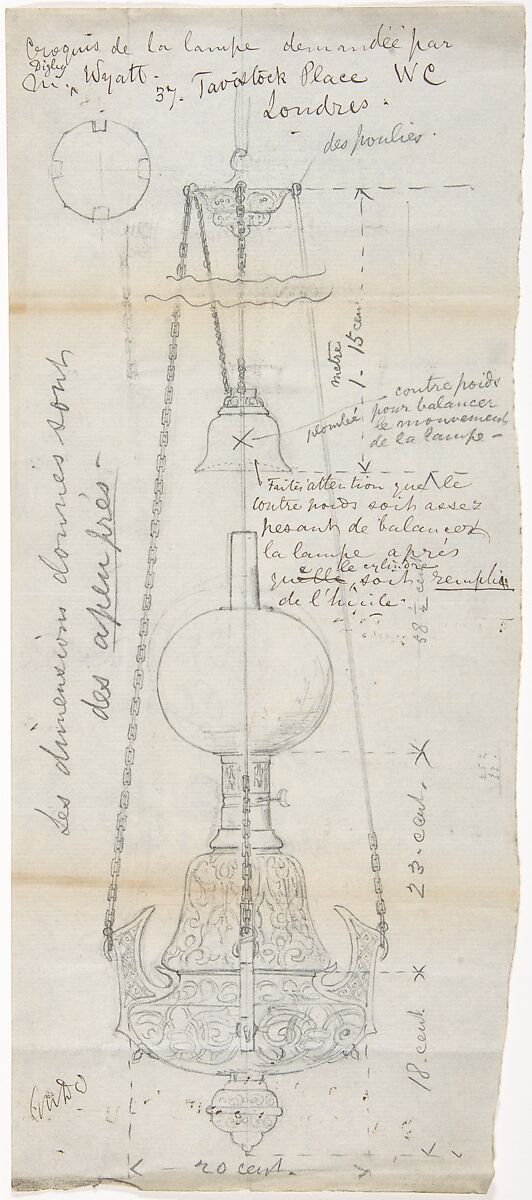 Croquis de la lampe demandée par
M. Digby Wyatt.
37. Tavistock Place WC
Londres.
des poulies.
metre
1 - 15 cent
contre poids
plombée pour balancer
le mouvement
de la lampe -
Faites attention que le
contre poids soit assez
pesant de balancer
la lampe aprés
que le cylindre soit remplie
de l'huile.
58 1/2 cent
Les dimensions données sont
des apeuprés -
23 - cent.
18 - cent
20 cent.